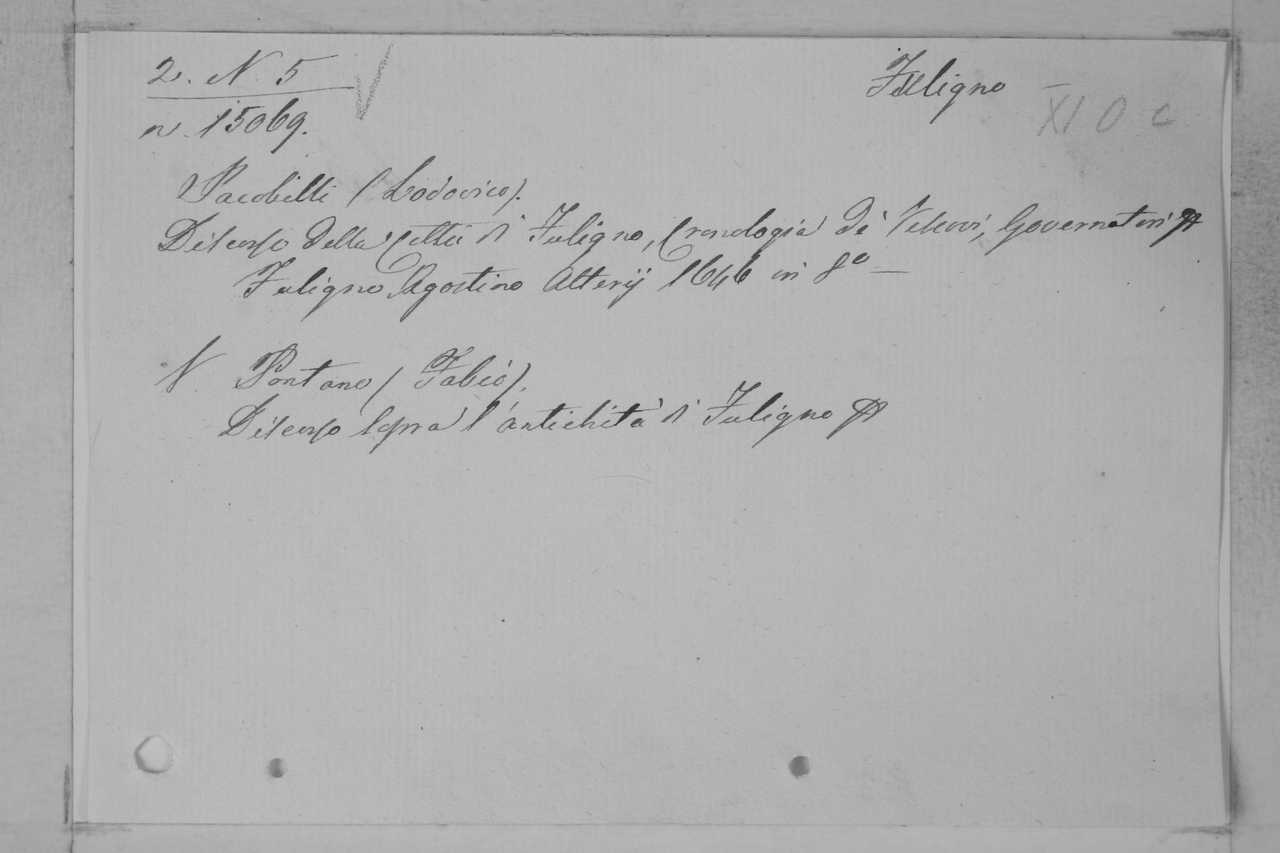 2. N. 5
n. 15069.
Fuligno
XI O c
Jacobilli (Lodovico).
Discorso della Città di Fuligno, Cronologia de' Vescovi, Governatori
Fuligno Agostino Alterij 1646 in 8º —
N Pontano (Fabio).
Discorso sopra l'antichità di Fuligno